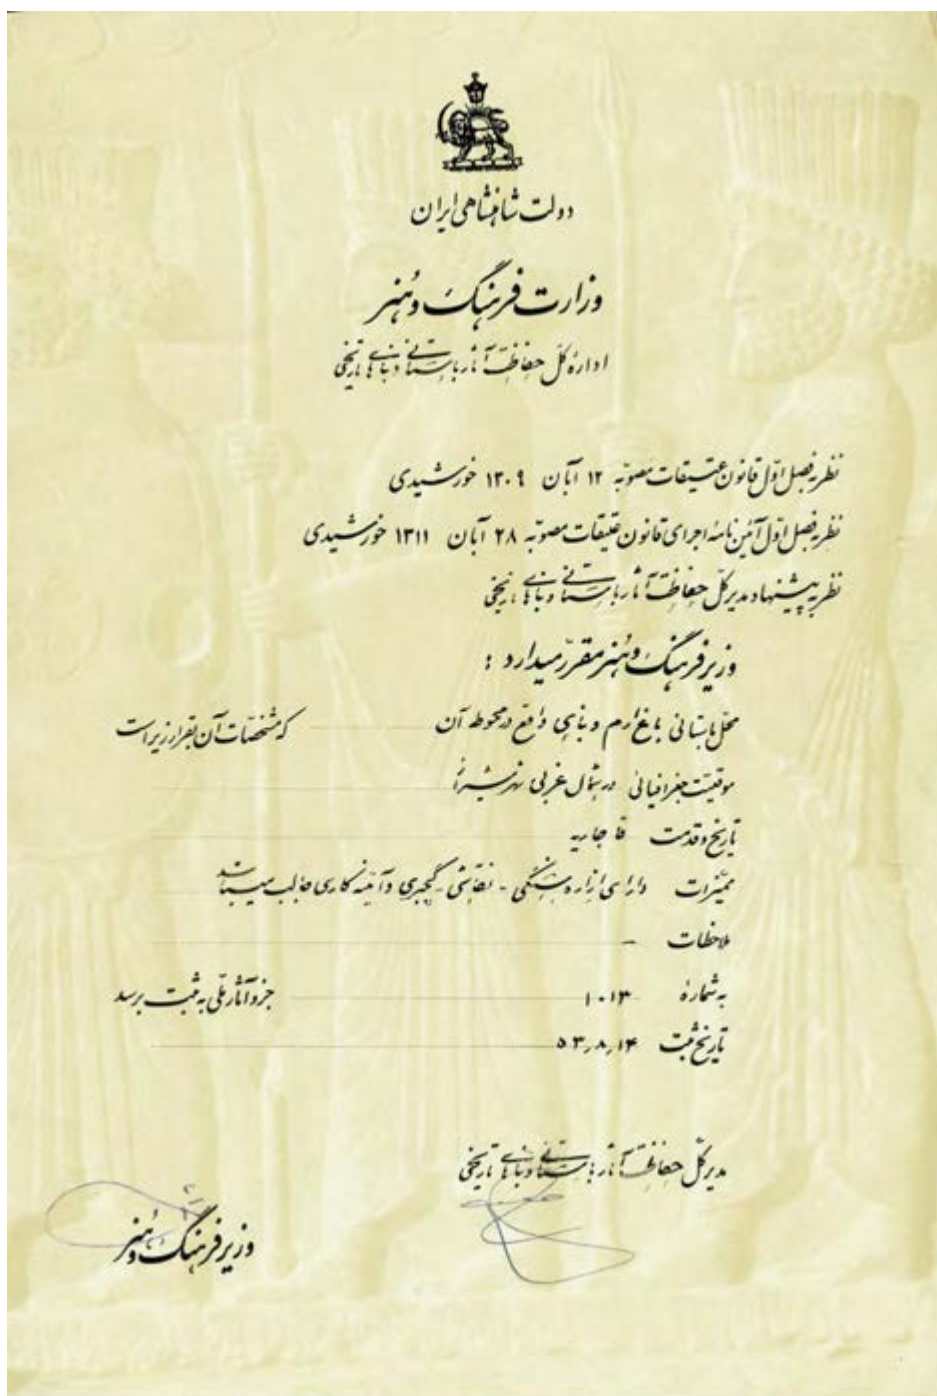 دولت شاهنشاهی ایران
وزارت فرهنگ و هنر
اداره کل حفاظت آثار باستانی و بناهای تاریخی
نظر بفصل اول قانون عتیقات مصوبه ۱۲ آبان ۱۳۰۹ خورشیدی
نظر بفصل اول آئین نامه اجرای قانون عتیقات مصوبه ۲۸ آبان ۱۳۱۱ خورشیدی
نظر به پیشنهاد مدیر کل حفاظت آثار باستانی و بناهای تاریخی
وزیر فرهنگ و هنر مقرر میدارد :
محل باستانی باغ ارم و بناهای واقع در محوطه آن که مشخصات آن بقرار زیر است
موقعیت جغرافیائی در شمال غربی شهر شیراز
تاریخ و قدمت قاجاریه
ممیزات دارای ازاره سنگی - نقاشی - گچبری و آئینه کاری جالب میباشد
ملاحظات -
به شماره ۱۰۱۳ جزو آثار ملی به ثبت برسد
تاریخ ثبت ۵۳٫۸٫۱۴
مدیر کل حفاظت آثار باستانی و بناهای تاریخی
وزیر فرهنگ و هنر